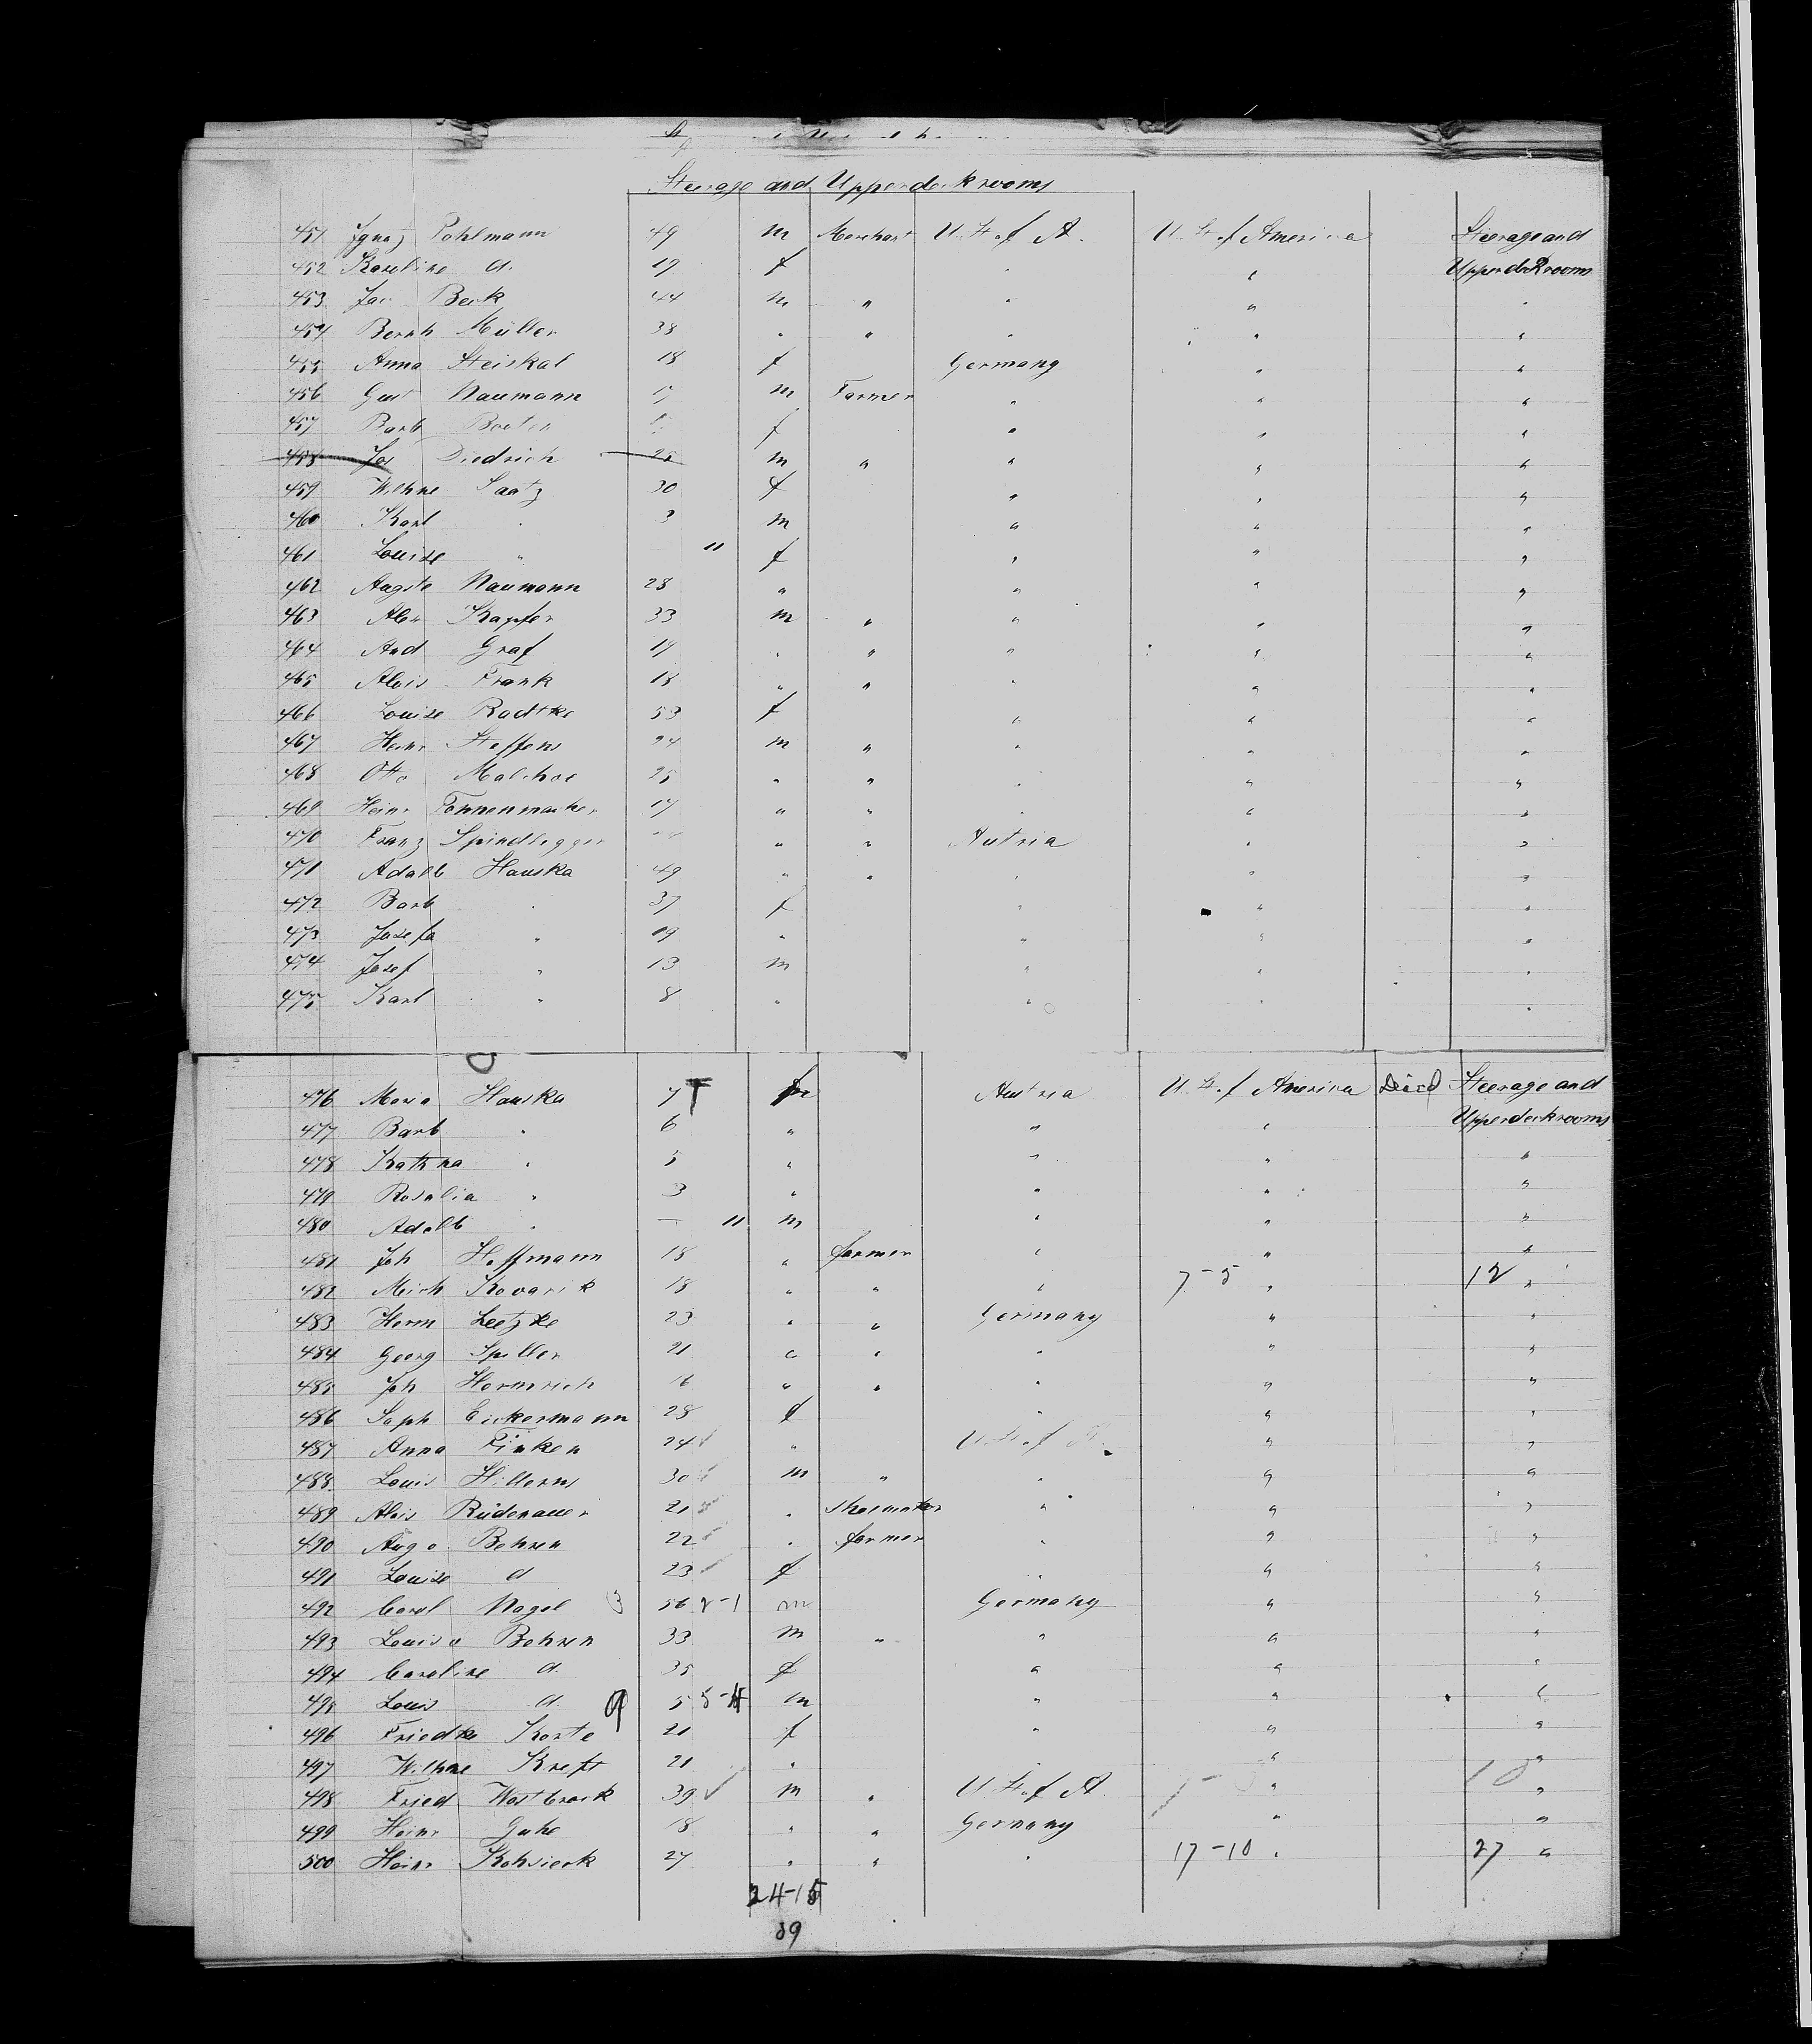 Steerage and Upperdeckrooms
451 Ignaz Pohlmann 49 m Merchant U. St. of A. U. St. of America Steerage and
452 Karoline d. 19 f " " Upperdeckrooms
453 Jac Beck 44 m " " " "
454 Bernh Müller 38 " " " " "
455 Anna Steiskal 18 f Germany " "
456 Gust Naumann 17 m Farmer " " "
457 Barb f " " "
458 Jos Diedrich 25 m " " " "
459 Wilhne Saatz 30 f " " "
460 Karl " 3 m " " "
461 Louise " 11 f " " "
462 Augste Naumann 28 " " " "
463 Alex Kapfer 33 m " " " "
464 And Graf 19 " " " " "
465 Alois Frank 18 " " " " "
466 Louise Radtke 53 f " " "
467 Heinr Steffens 24 m " " " "
468 Otto Malchoe 25 " " " " "
469 Heinr Tonnenmacher 17 " " " " "
470 Franz Spindlegger " " Autria " "
471 Adalb Hauska 49 " " " " "
472 Barb " 37 f " " "
473 Josefa " 19 " " " "
474 Josef " 13 m " " "
475 Karl " 8 " " " "
476 Maria Hauska 7 f Austria U. St. of America Died Steerage and
477 Barb " 6 " " " Upperdeckrooms
478 Kathna " 5 " " " "
479 Rosalia " 3 " " " "
480 Adalb " — 11 m " " "
481 Joh Hoffmann 18 " farmer " " "
482 Mich Kovarik 18 " " " 7-5 " 12 "
483 Herm Leetzke 23 " " Germany " "
484 Georg Spiller 21 " " " " "
485 Joh Hermrich 16 " " " " "
486 Soph Eickermann 28 f " " "
487 Anna Finken 24 " U. St. of A. " "
488 Louis Hillerns 30 m " " " "
489 Alois Rüdenauer 21 " Shoemaker " " "
490 Aug Behsen 22 " farmer " " "
491 Louise d 23 f " " "
492 Carl Nagel 56 8-1 m Germany " "
493 Louis Behsen 33 m " " " "
494 Caroline d. 35 f " " "
495 Louis d. 5 5-4 m " " "
496 Friedke Korte 21 f " " "
497 Wilhne Kreft 21 " " " "
498 Fried Westbrock 39 m " U. St. of A. " 10 "
499 Heinr Guhe 18 " " Germany " "
500 Heinr Kohsiek 27 " " " 17-10 " 27 "
24-15
39